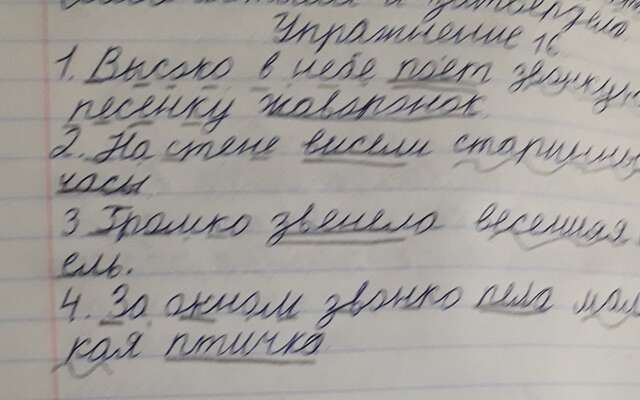 Упражнение 16
1. Высоко в небе поет звонкую
песенку жаворонок.
2. На стене висели старинные
часы
3 Громко звенела весенняя
ель.
4. За окном звонко пела мал
кая птичка